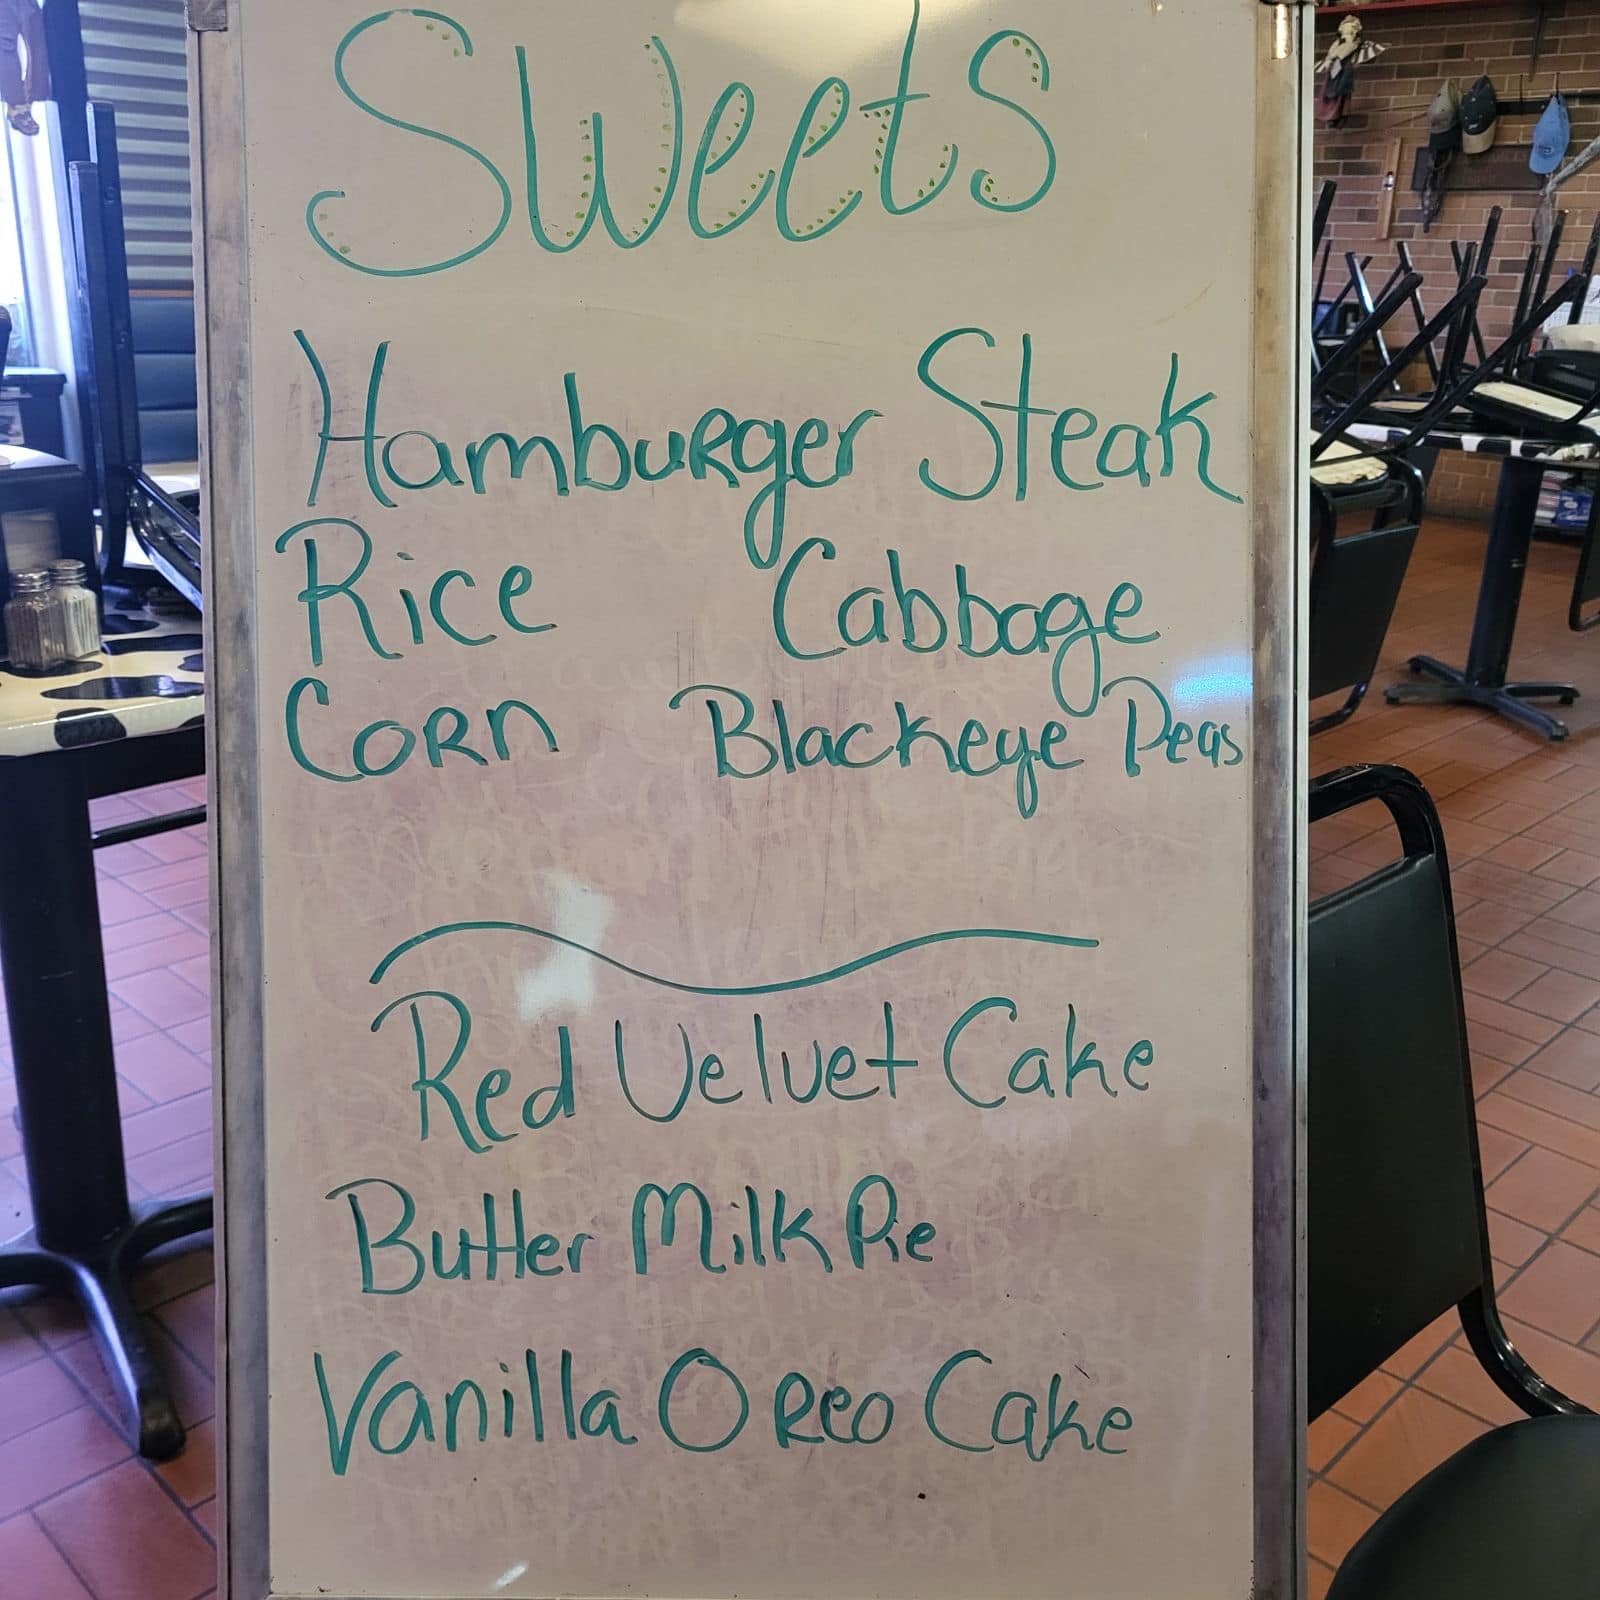 Sweets
Hamburger Steak
Rice Cabbage
Corn Blackeye Peas
Red Velvet Cake
Butter Milk Pie
Vanilla Oreo Cake